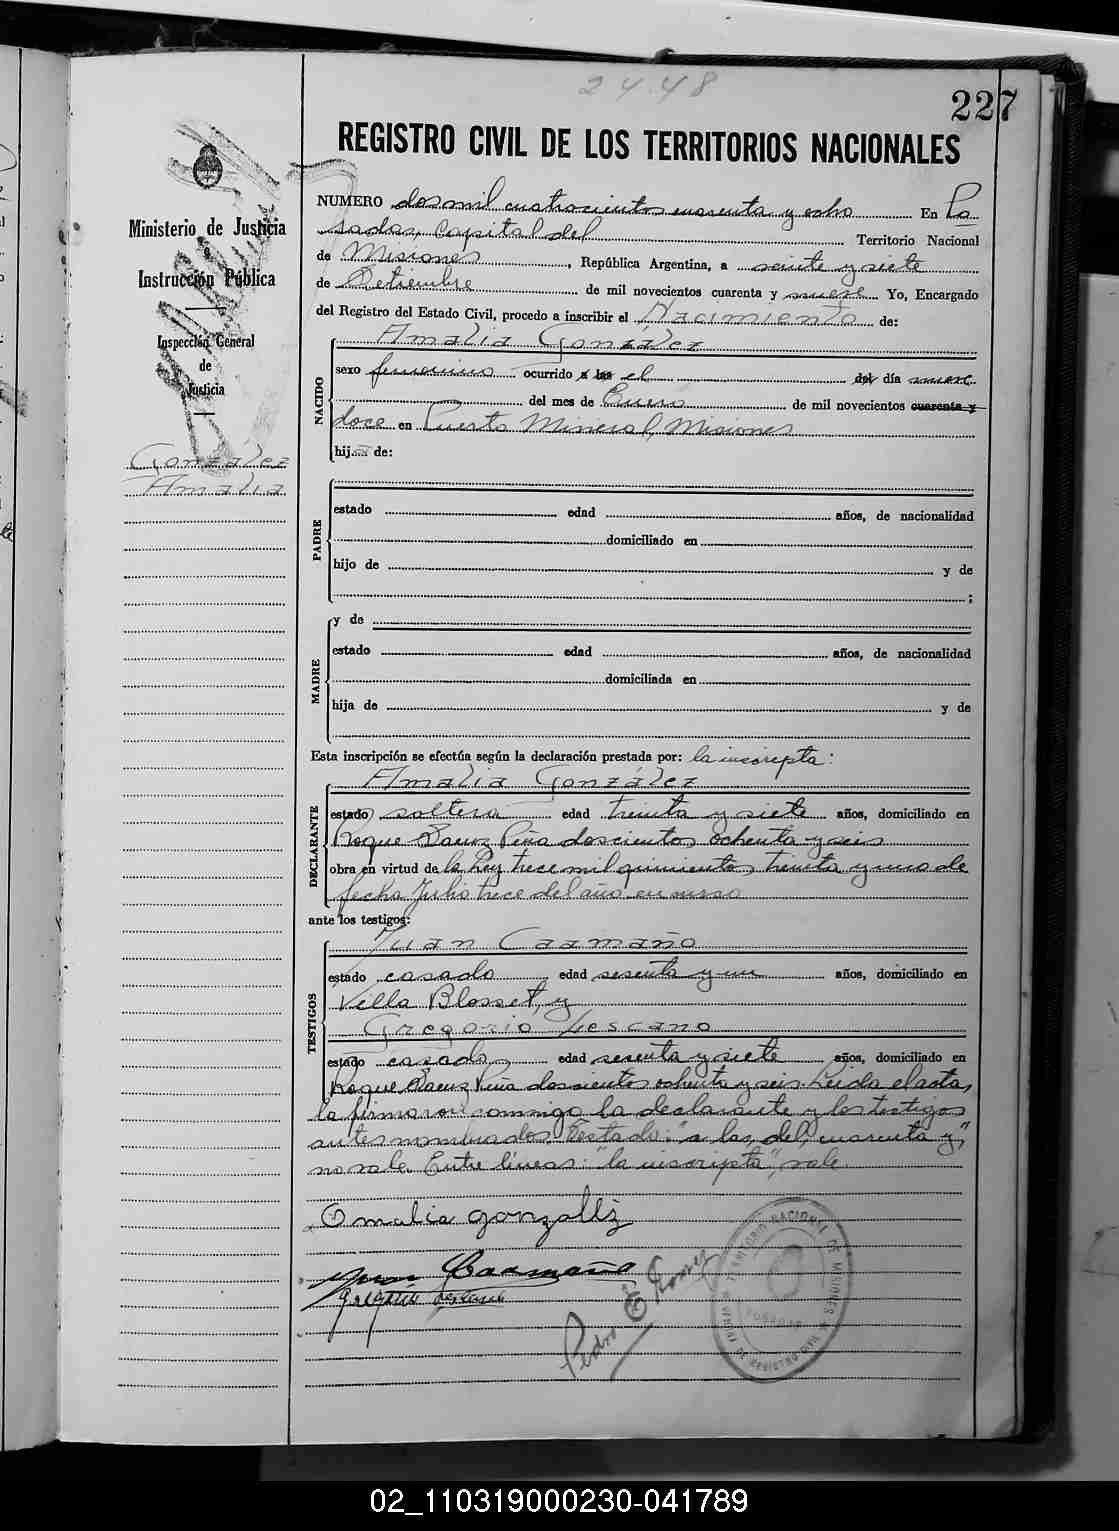 24.48
227
REGISTRO CIVIL DE LOS TERRITORIOS NACIONALES
Ministerio de Justicia
e
Instrucción Pública
Inspección General
de
Justicia
Gonzalez
Amalia
NUMERO dos mil cuatrocientos cuarenta y ocho En Po
sadas, Capital del Territorio Nacional
de Misiones, República Argentina, a veinte y siete
de Setiembre de mil novecientos cuarenta y nueve Yo, Encargado
del Registro del Estado Civil, procedo a inscribir el Nacimiento de:
NACIDO
Amalia González
sexo femenino ocurrido a las el del día nueve
del mes de Enero de mil novecientos cuarenta y
doce en Puerto Mineral, Misiones
hij de:
PADRE
estado edad años, de nacionalidad
domiciliado en
hijo de y de
;
MADRE
y de
estado edad años, de nacionalidad
domiciliada en
hija de y de
Esta inscripción se efectúa según la declaración prestada por: la inscripta:
DECLARANTE
Amalia González
estado soltera edad treinta y siete años, domiciliado en
Roque Saenz Peña doscientos ochenta y seis
obra en virtud de la Ley trece mil quinientos treinta y uno de
fecha Julio trece del año en curso
ante los testigos:
TESTIGOS
Juan Caamaño
estado casado edad sesenta y un años, domiciliado en
Villa Blosset, y
Gregorio Lescano
estado casado edad sesenta y siete años, domiciliado en
Roque Saenz Peña doscientos ochenta y seis. Leida el acta,
la firmaron conmigo la declarante y los testigos
antes nombrados. Testado: "a las, del, cuarenta y",
no vale. Entre líneas: "la inscripta", vale.
Omalia gonzallez
Juan Caamaño
Gregorio Lescano
Pedro E Gomez
TERRITORIO NACIONAL DE MISIONES
POSADAS
02_110319000230-041789